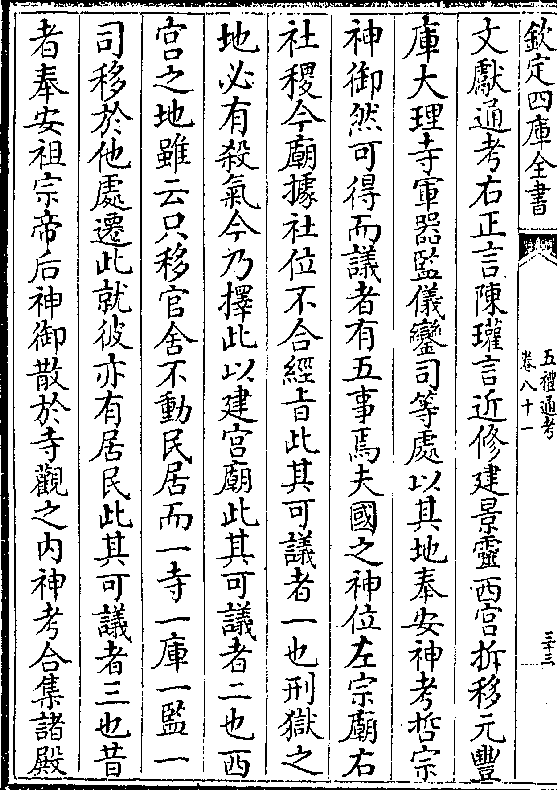 欽定四庫全書
五禮通考
卷八十一
三十三
文獻通考右正言陳瓘言近修建景靈西宮拆移元豐
庫大理寺軍器監儀鑾司等處以其地奉安神考哲宗
神御然可得而議者有五事焉夫國之神位左宗廟右
社稷今廟據社位不合經旨此其可議者一也刑獄之
地必有殺氣今乃擇此以建宮廟此其可議者二也西
宮之地雖云只移官舍不動民居而一寺一庫一監一
司移於他處遷此就彼亦有居民此其可議者三也昔
者奉安祖宗帝后神御散於寺觀之内神考合集諸殿